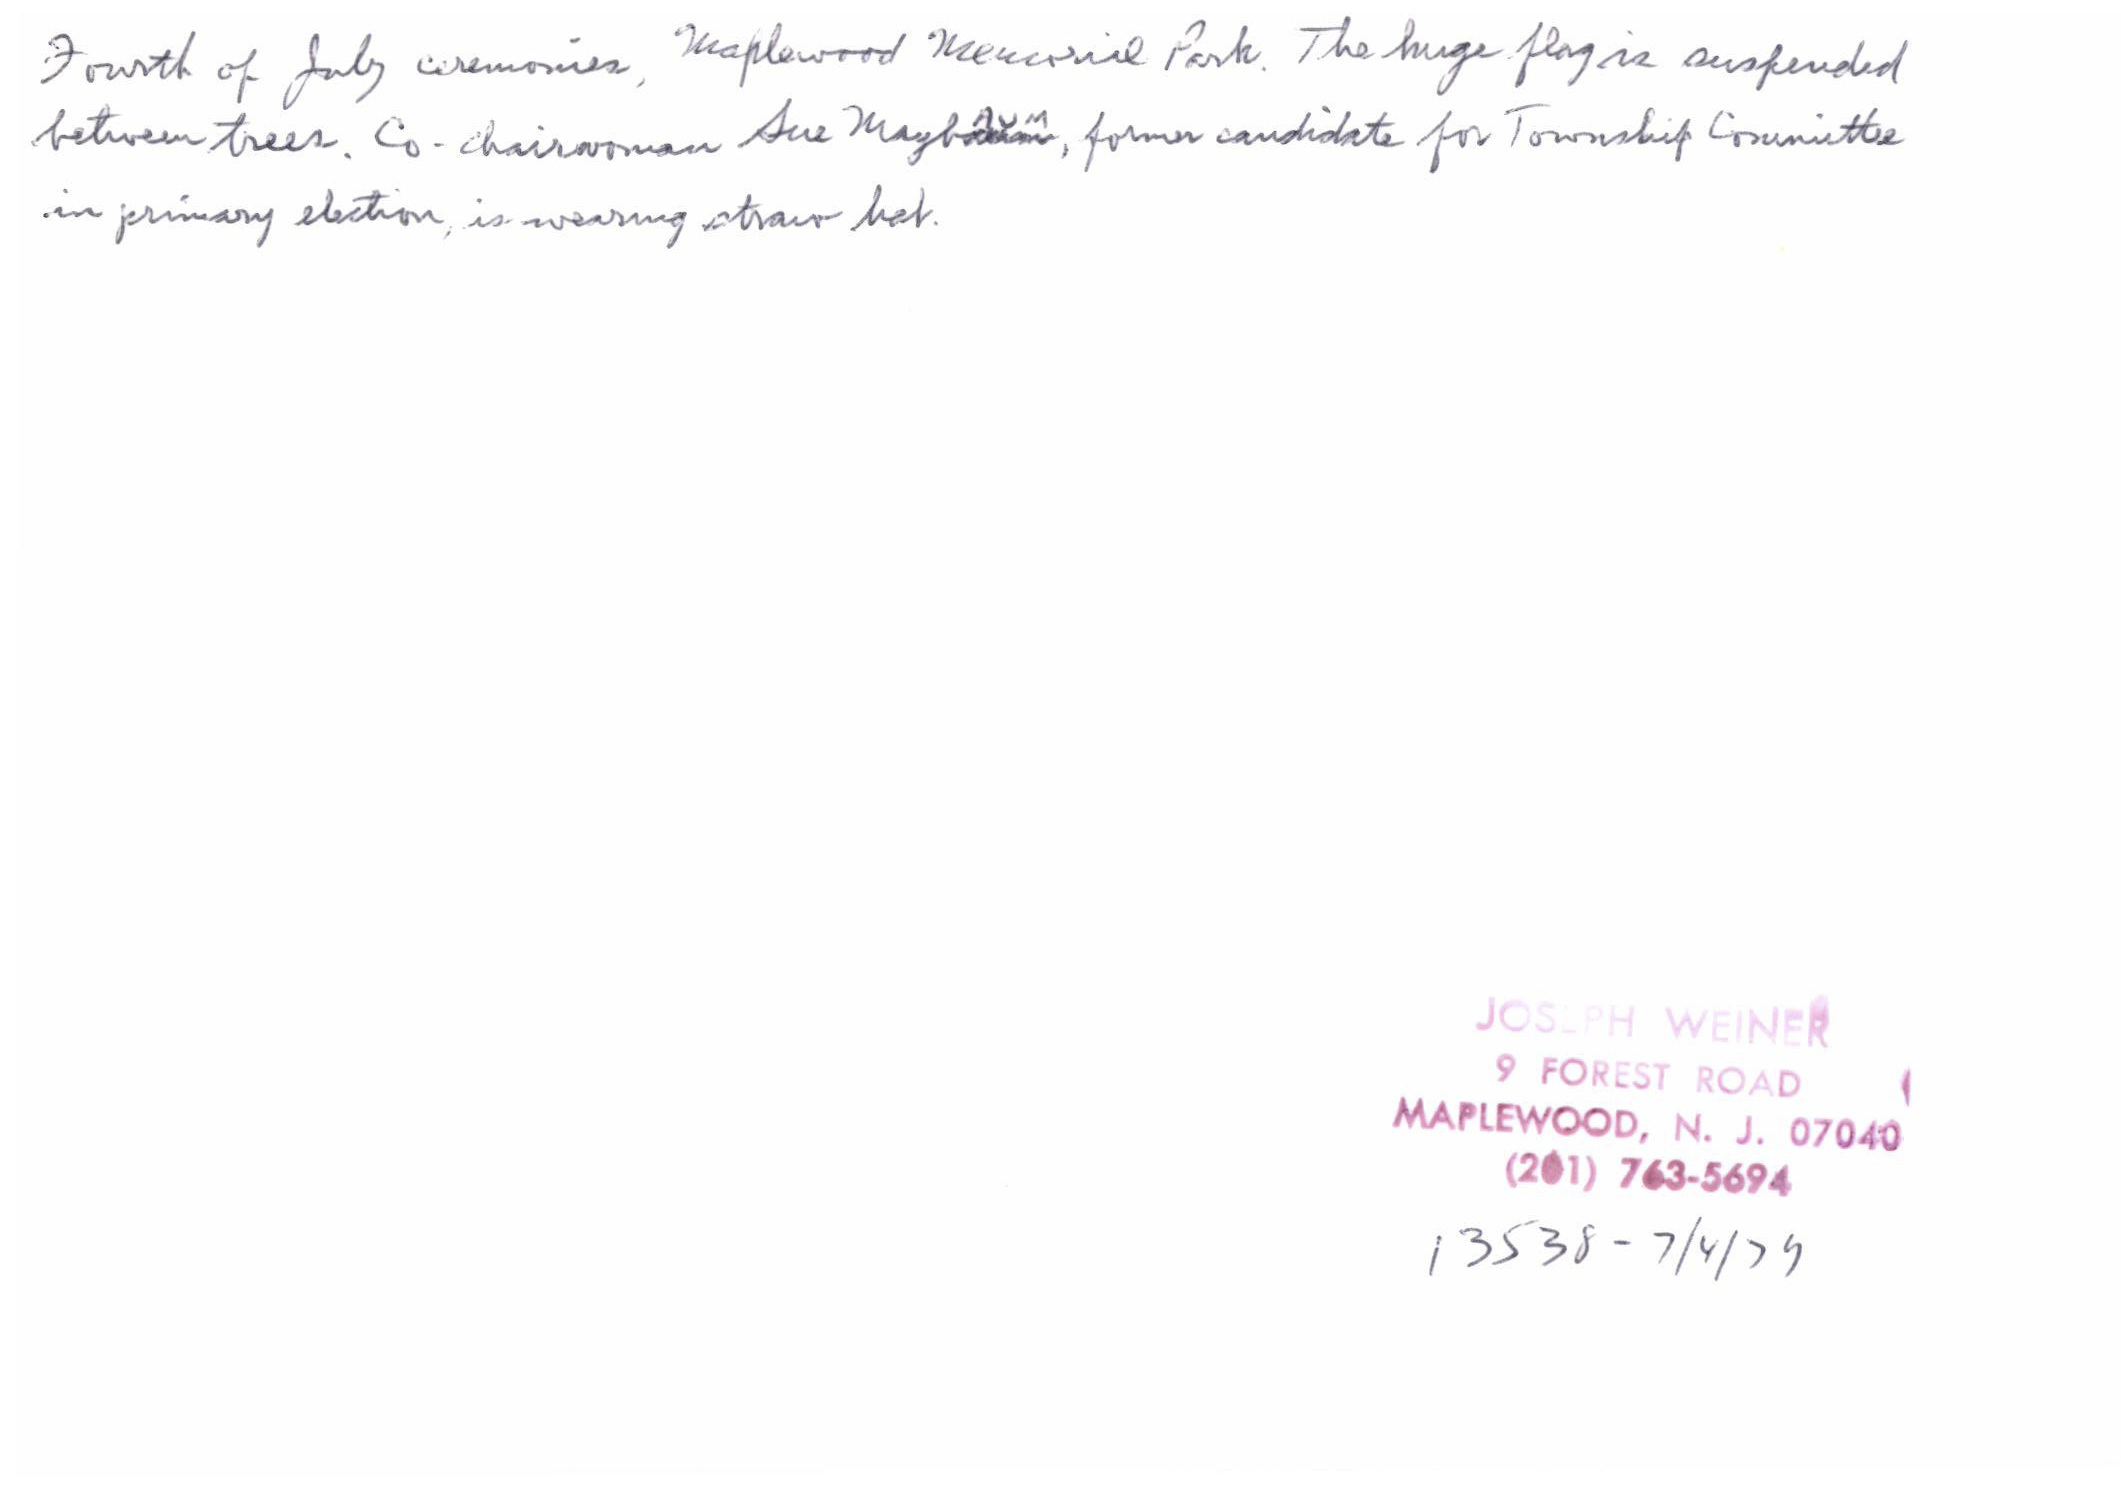 Fourth of July ceremonies, Maplewood Memorial Park. The huge flag is suspended
between trees. Co-chairwoman Sue Maybaum, former candidate for Township Committee
in primary election, is wearing straw hat.
JOSEPH WEINER
9 FOREST ROAD
MAPLEWOOD, N. J. 07040
(201) 763-5694
13538-7/4/79